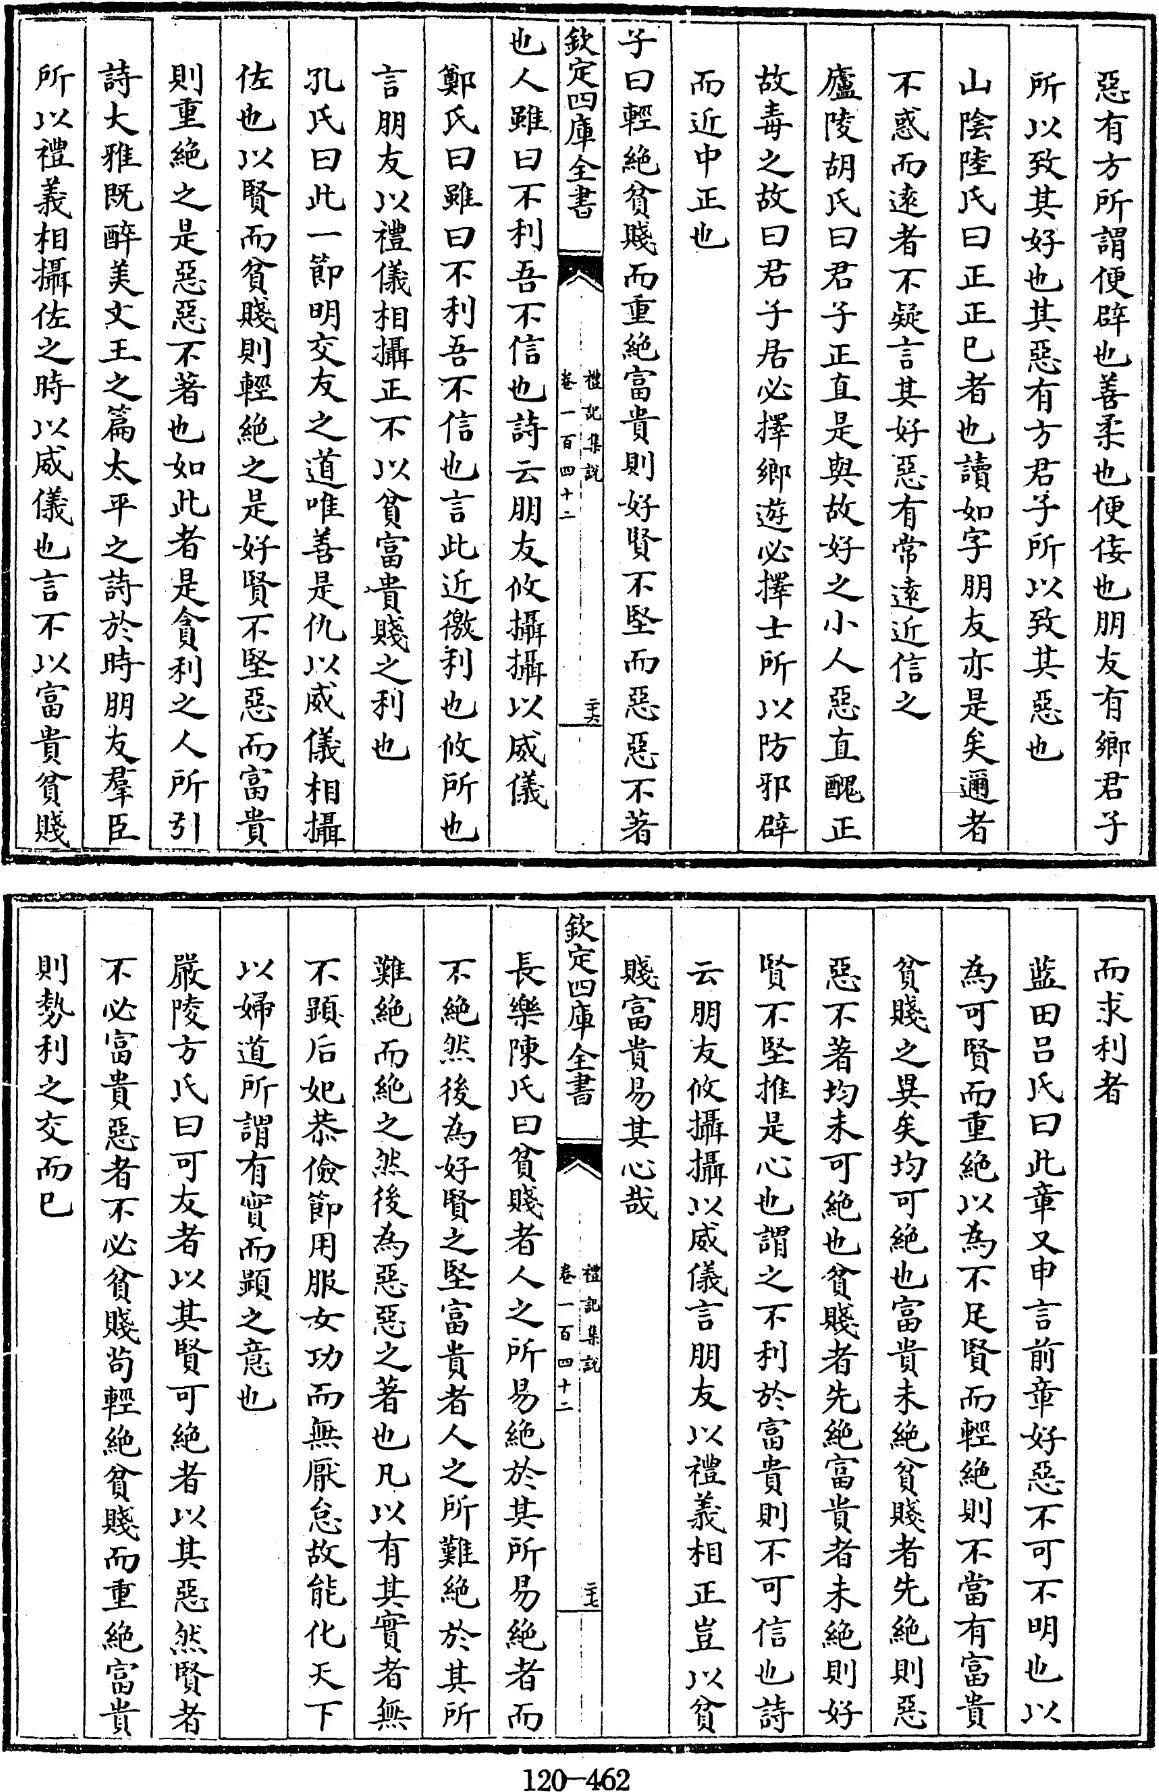 惡有方所謂便辟也善柔也便佞也朋友有鄉君子
所以致其好也其惡有方君子所以致其惡也
山陰陸氏曰正正已者也讀如字朋友亦是矣邇者
不惑而遠者不疑言其好惡有常遠近信之
廬陵胡氏曰君子正直是與故好之小人惡直醜正
故毒之故曰君子居必擇鄉遊必擇士所以防邪辟
而近中正也
子曰輕絶貧賤而重絶富貴則好賢不堅而惡惡不著
欽定四庫全書
禮記集說
卷一百四十二
二十六
也人雖曰不利吾不信也詩云朋友攸攝攝以威儀
鄭氏曰雖曰不利吾不信也言此近徼利也攸所也
言朋友以禮儀相攝正不以貧富貴賤之利也
孔氏曰此一節明交友之道唯善是仇以威儀相攝
佐也以賢而貧賤則輕絶之是好賢不堅惡而富貴
則重絶之是惡惡不著也如此者是貪利之人所引
詩大雅既醉美文王之篇太平之詩於時朋友羣臣
所以禮義相攝佐之時以威儀也言不以富貴貧賤
而求利者
藍田呂氏曰此章又申言前章好惡不可不明也以
為可賢而重絶以為不足賢而輕絶則不當有富貴
貧賤之異矣均可絶也富貴未絶貧賤者先絶則惡
惡不著均未可絶也貧賤者先絶富貴者未絶則好
賢不堅推是心也謂之不利於富貴則不可信也詩
云朋友攸攝攝以威儀言朋友以禮義相正豈以貧
賤富貴易其心哉
欽定四庫全書
禮記集說
卷一百四十二
二十七
長樂陳氏曰貧賤者人之所易絶於其所易絶者而
不絶然後為好賢之堅富貴者人之所難絶於其所
難絶而絶之然後為惡惡之著也凡以有其實者無
不顯后妃恭儉節用服女功而無厭怠故能化天下
以婦道所謂有實而顯之意也
嚴陵方氏曰可友者以其賢可絶者以其惡然賢者
不必富貴惡者不必貧賤苟輕絶貧賤而重絶富貴
則勢利之交而已
120-462